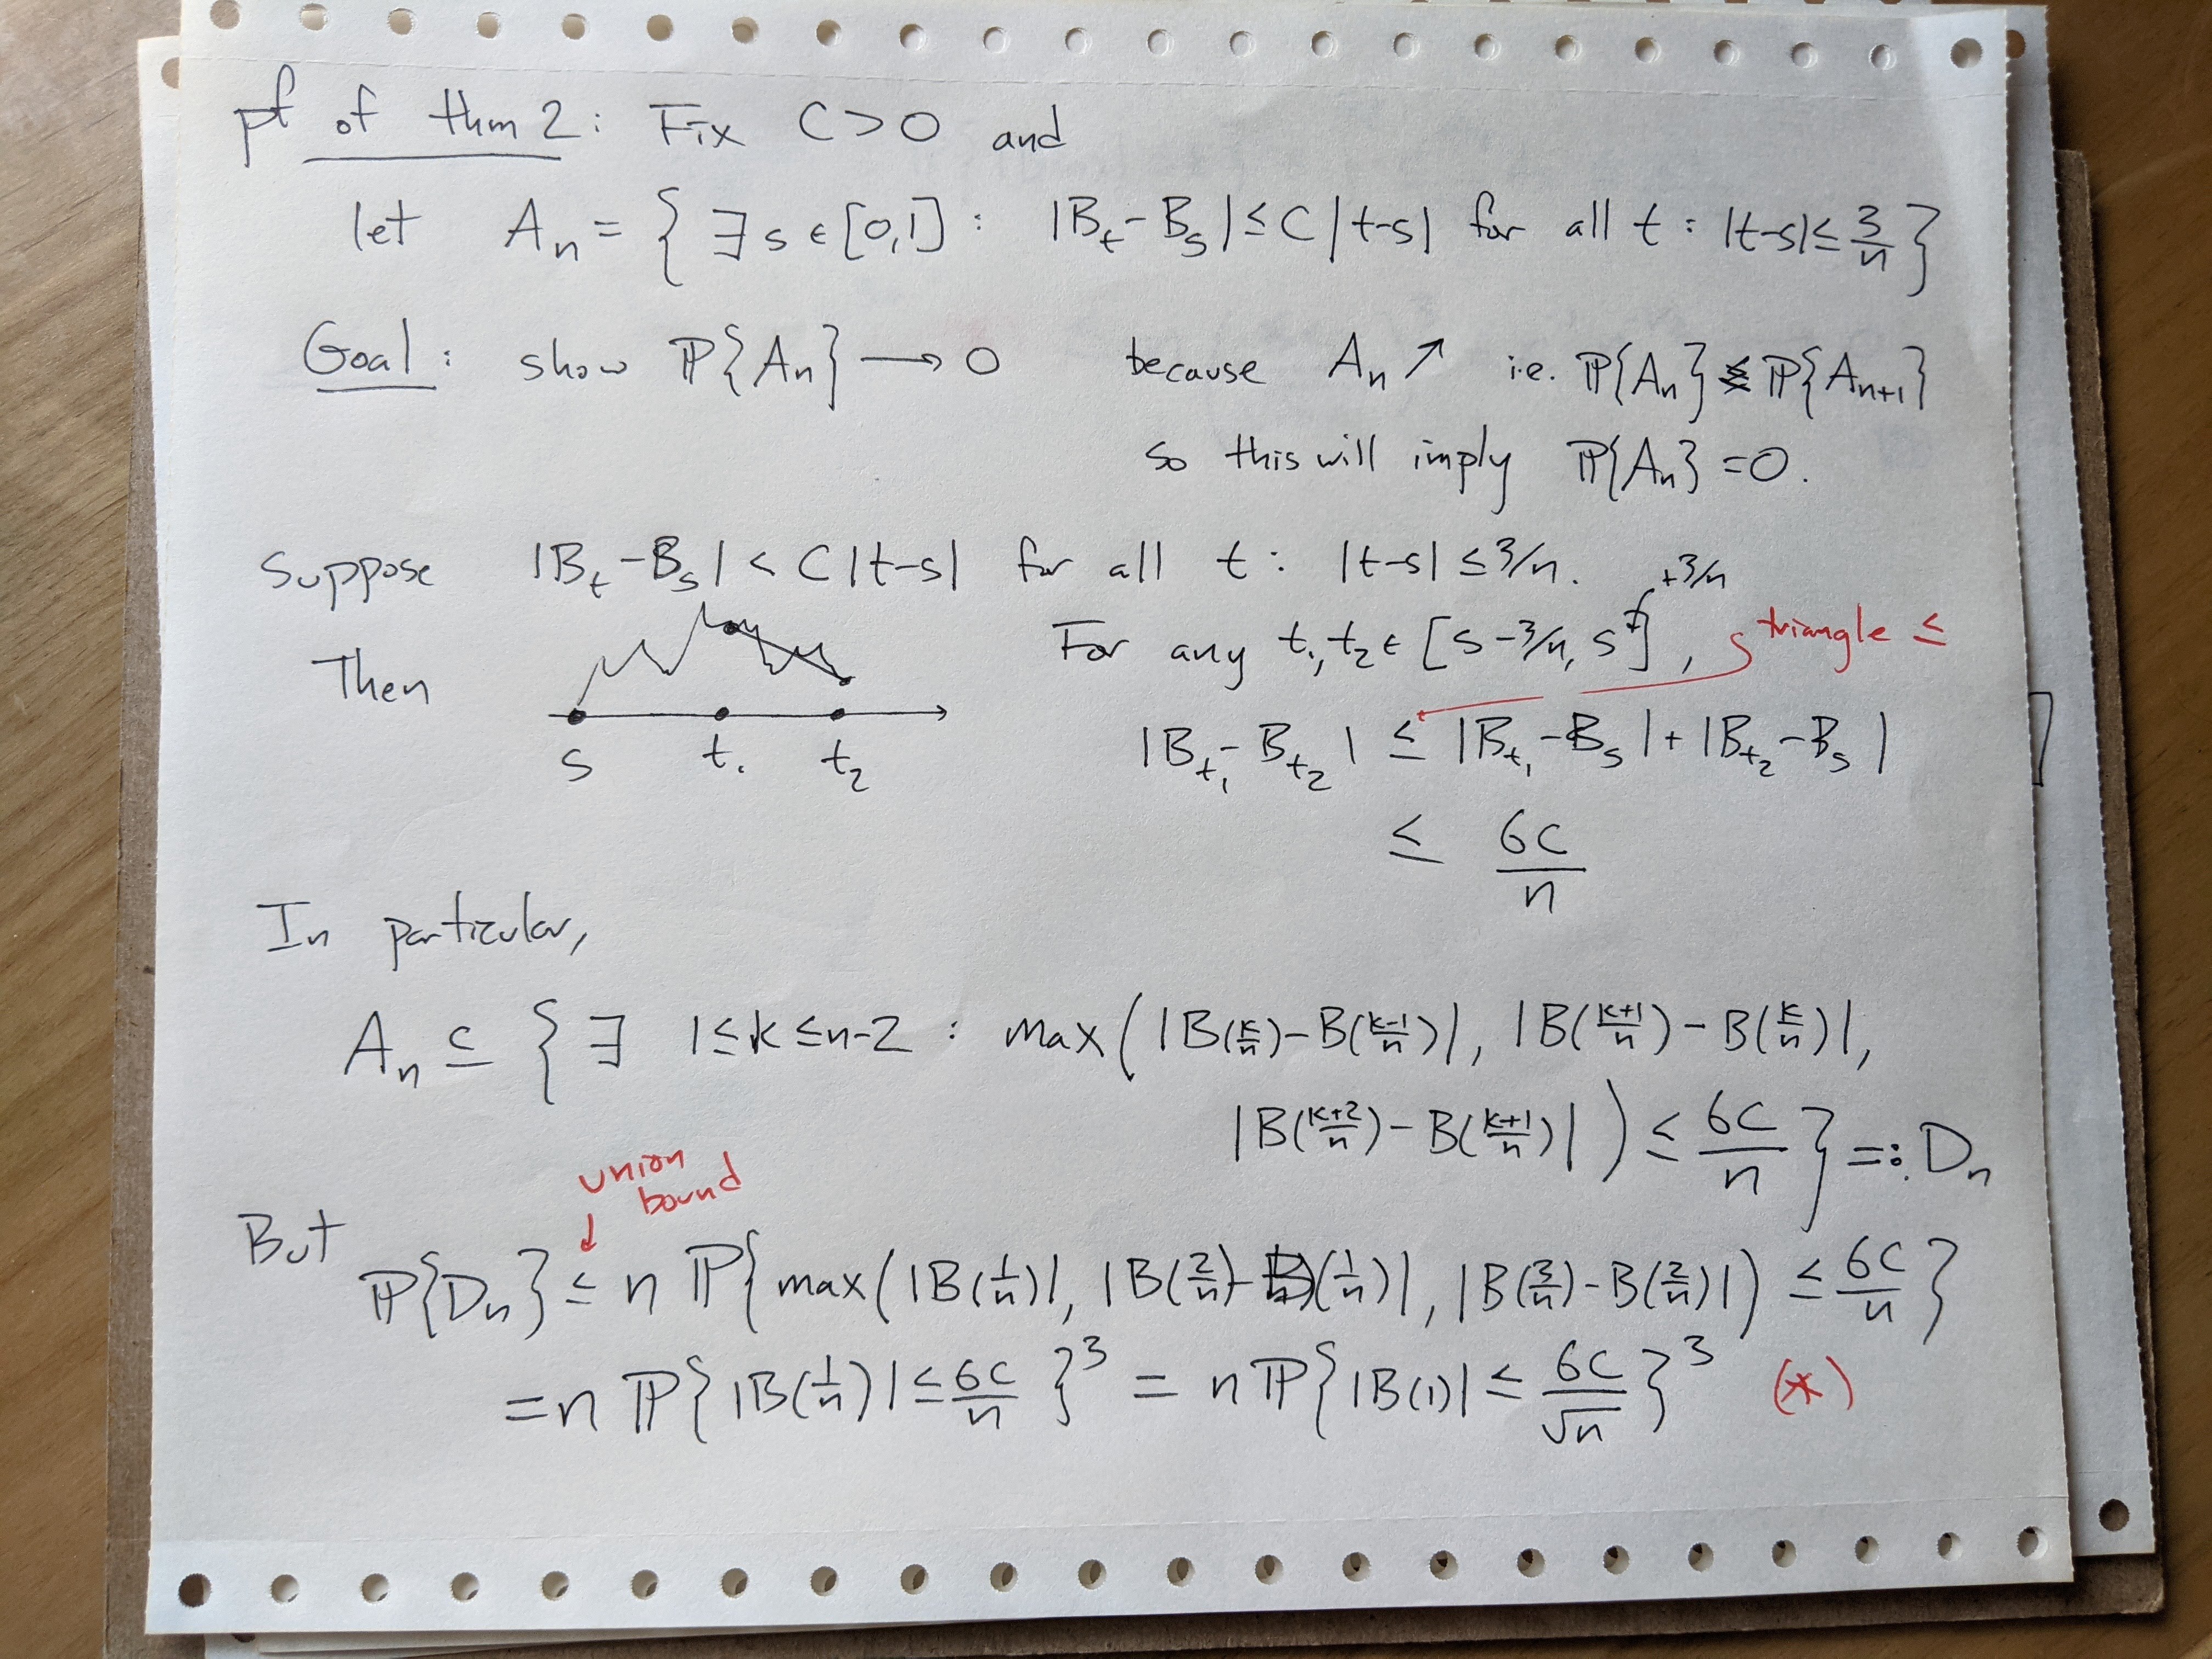 pf of thm 2: Fix C > 0 and
let A_n = { ∃ s ∈ [0,1] : |B_t - B_s| ≤ C |t-s| for all t : |t-s| ≤ 3/n }
Goal: show ℙ{A_n} → 0 because A_n ↗ i.e. ℙ{A_n} ≤ ℙ{A_{n+1}}
so this will imply ℙ{A_n} = 0.
Suppose |B_t - B_s| < C |t-s| for all t : |t-s| ≤ 3/n.
+3/n
Then For any t_1, t_2 ∈ [s - 3/n, s], triangle ≤
s t_1 t_2 |B_{t_1} - B_{t_2}| ≤ |B_{t_1} - B_s| + |B_{t_2} - B_s|
≤ 6C/n
In particular,
A_n ⊆ { ∃ 1 ≤ k ≤ n-2 : max( |B(k/n) - B(k-1/n)|, |B(k+1/n) - B(k/n)|,
|B(k+2/n) - B(k+1/n)| ) ≤ 6C/n } =: D_n
union
bound
But
ℙ{D_n} ≤ n ℙ{ max( |B(1/n)|, |B(2/n) - B(1/n)|, |B(3/n) - B(2/n)| ) ≤ 6C/n }
= n ℙ{ |B(1/n)| ≤ 6C/n }^3 = n ℙ{ |B(1)| ≤ 6C/√n }^3 (*)